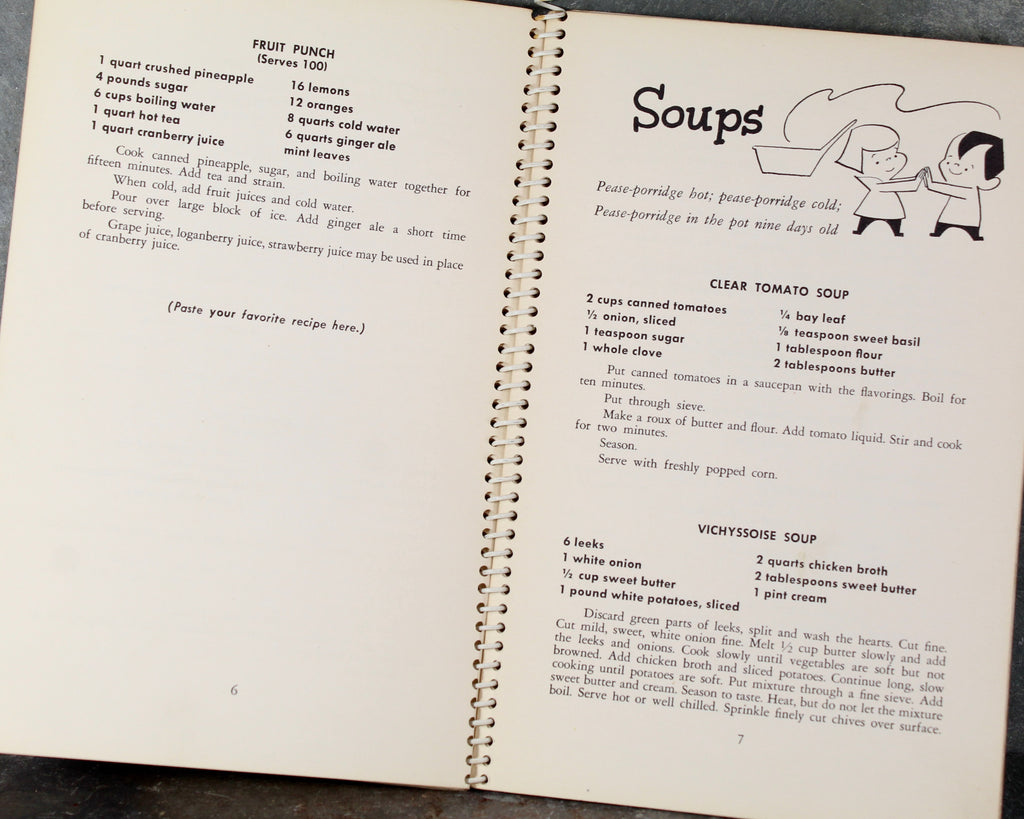 FRUIT PUNCH
(Serves 100)
1 quart crushed pineapple
4 pounds sugar
6 cups boiling water
1 quart hot tea
1 quart cranberry juice
16 lemons
12 oranges
8 quarts cold water
6 quarts ginger ale
mint leaves
Cook canned pineapple, sugar, and boiling water together for
fifteen minutes. Add tea and strain.
When cold, add fruit juices and cold water.
Pour over large block of ice. Add ginger ale a short time
before serving.
Grape juice, loganberry juice, strawberry juice may be used in place
of cranberry juice.
(Paste your favorite recipe here.)
6
Soups
Pease-porridge hot; pease-porridge cold;
Pease-porridge in the pot nine days old
CLEAR TOMATO SOUP
2 cups canned tomatoes
½ onion, sliced
1 teaspoon sugar
1 whole clove
¼ bay leaf
⅛ teaspoon sweet basil
1 tablespoon flour
2 tablespoons butter
Put canned tomatoes in a saucepan with the flavorings. Boil for
ten minutes.
Put through sieve.
Make a roux of butter and flour. Add tomato liquid. Stir and cook
for two minutes.
Season.
Serve with freshly popped corn.
VICHYSSOISE SOUP
6 leeks
1 white onion
½ cup sweet butter
1 pound white potatoes, sliced
2 quarts chicken broth
2 tablespoons sweet butter
1 pint cream
Discard green parts of leeks, split and wash the hearts. Cut fine.
Cut mild, sweet, white onion fine. Melt ½ cup butter slowly and add
the leeks and onions. Cook slowly until vegetables are soft but not
browned. Add chicken broth and sliced potatoes. Continue long, slow
cooking until potatoes are soft. Put mixture through a fine sieve. Add
sweet butter and cream. Season to taste. Heat, but do not let the mixture
boil. Serve hot or well chilled. Sprinkle finely cut chives over surface.
7